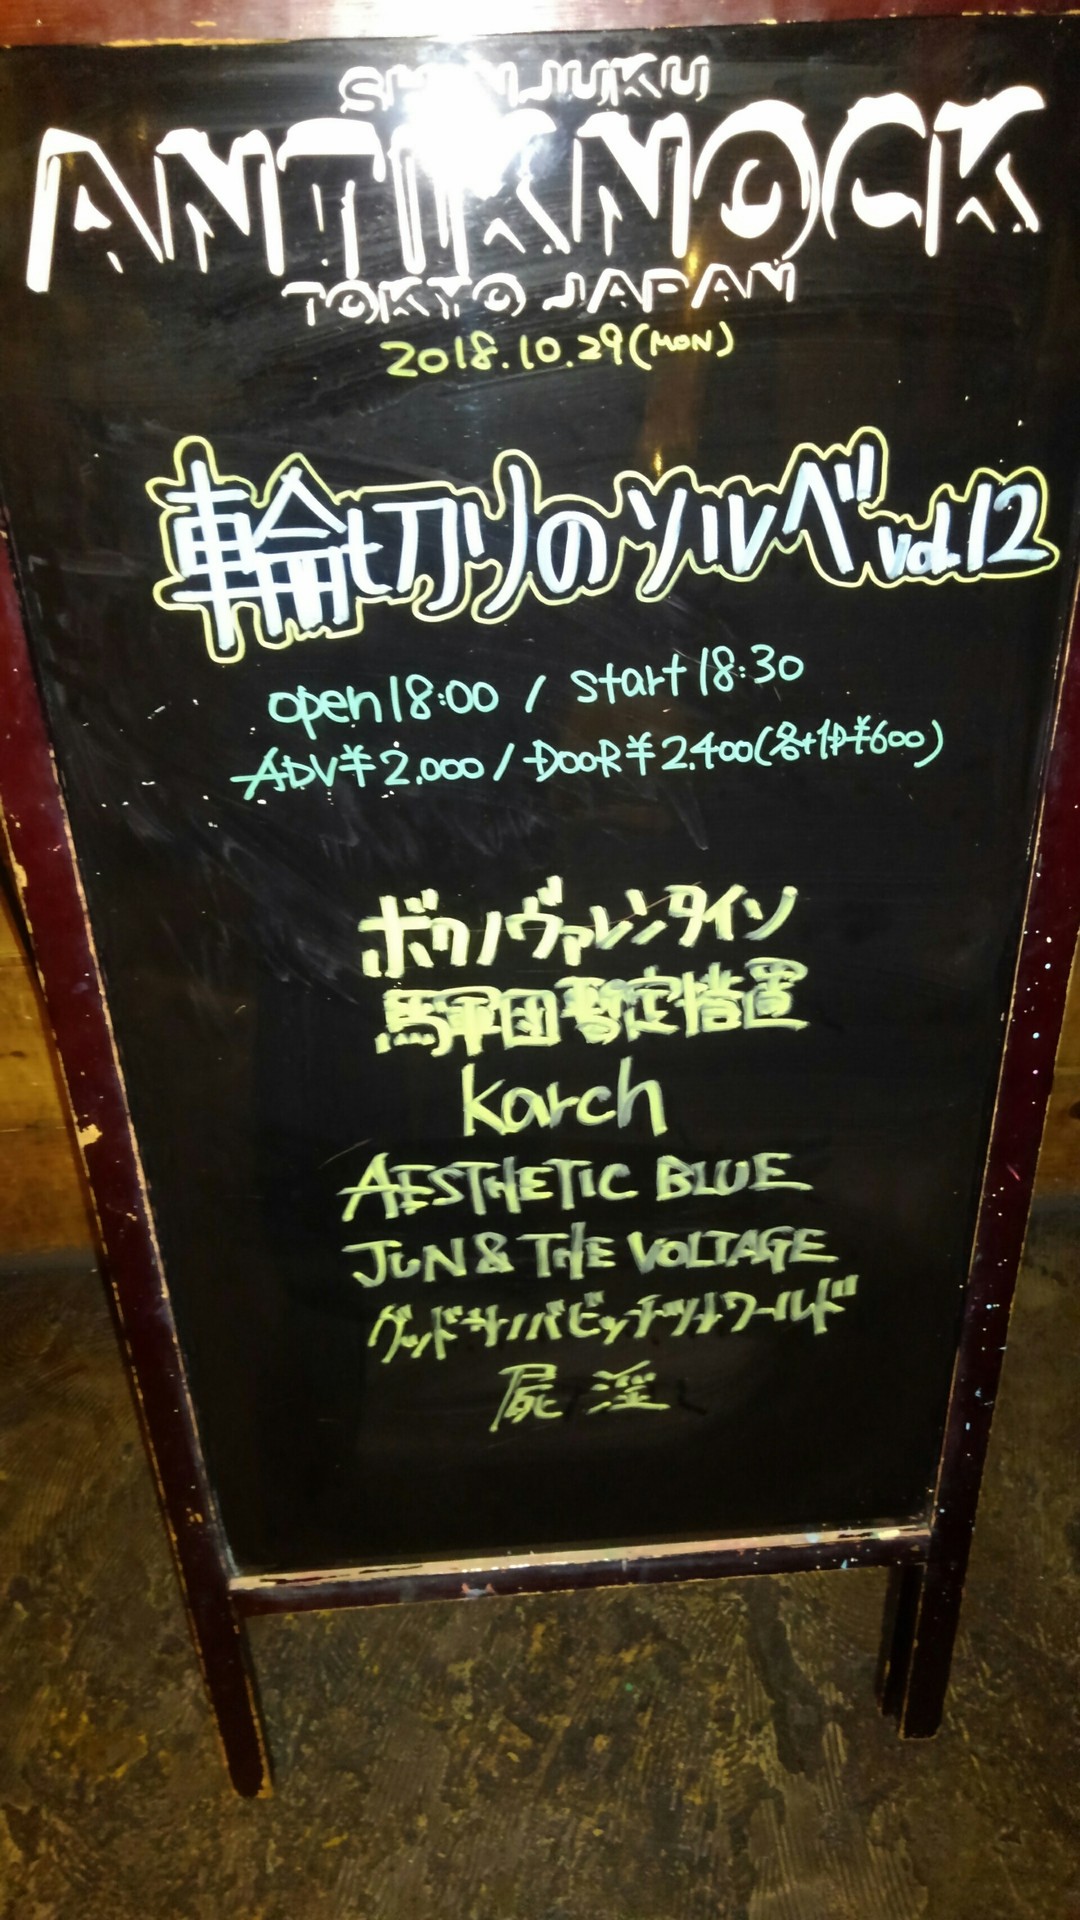 SHINJUKU
ANTIKNOCK
TOKYO JAPAN
2018.10.29(MON)
輪切りのソルベ vol.12
open18:00 / start18:30
ADV¥2.000 / DOOR¥2.400(各+1D¥600)
ボクノヴァレンタイン
馬軍団暫定措置
karch
AESTHETIC BLUE
JUN & THE VOLTAGE
グッドサノバビッチツナワールド
屍淫